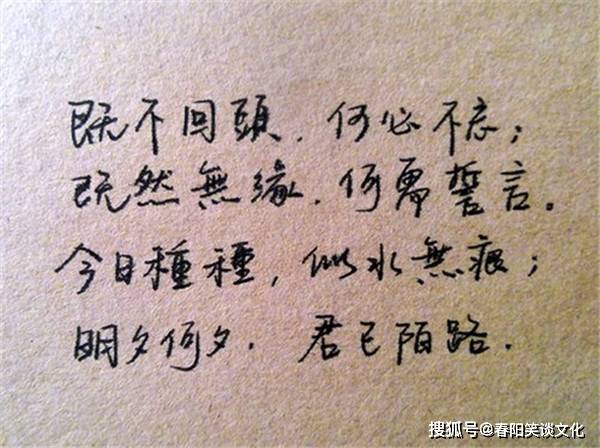 既不回頭，何必不忘；
既然無緣，何需誓言。
今日種種，似水無痕；
明夕何夕，君已陌路．
搜狐号@春阳笑谈文化